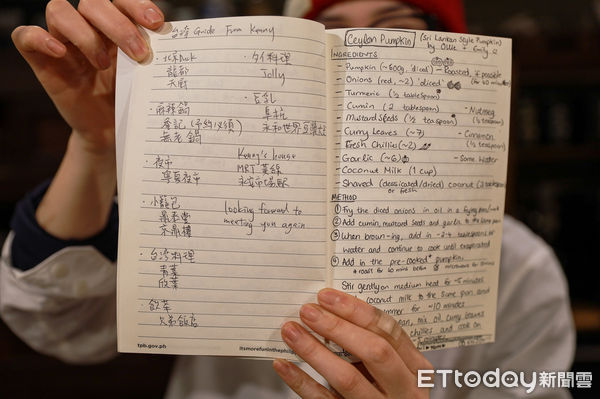 台湾 Guide From Kenny
・北京Duck
龍都
天廚
・タイ料理
Jolly
・豆乳
阜杭
永和世界豆漿大王
・麻辣鍋
詹記 (予約必須)
無老鍋
・夜市
寧夏夜市
Kenny's house
MRT 萬線
・小龍包
鼎泰豐
京鼎樓
looking forward to
meeting you again
・台湾料理
青葉
欣葉
・飲茶
兄弟飯店
tpb.gov.ph
itsmorefuninthephilipp
Ceylon Pumpkin (Sri Lankan Style Pumpkin)
by Ollie + Emily
INGREDIENTS
- Pumpkin (~600g, 'dical') - Roasted, if possible
(for 40 mins)
- Onions (red, ~2) 'diced'
- Turmeric (½ tablespoon)
- Cumin (2 tablespoon)
- Nutmeg
(½ teaspoon)
- Mustard Seeds (½ teaspoon)
- Curry Leaves (~7)
- Cinnamon
(½ teaspoon)
- Fresh Chillies (~2)
- Garlic (~6)
- Some Water
- Coconut Milk (1 cup)
- Shaved (dessicated/dried) coconut (2 tablespoon)
or fresh
METHOD
① Fry the diced onions in oil in a frying pan/wok
② Add cumin, mustard seeds and garlic to the same pan
③ When brown-ing, add in ~2-4 tablespoons of
water and continue to cook until evaporated
④ Add in the pre-cooked* pumpkin.
* roast for 40 mins before or microwave for 5 mins
Stir gently on medium heat for ~5 minutes
coconut milk to the same pan and
simmer for ~10 minutes
pan, mix oil, curry leaves
chillies and cook on
ETtoday新聞雲